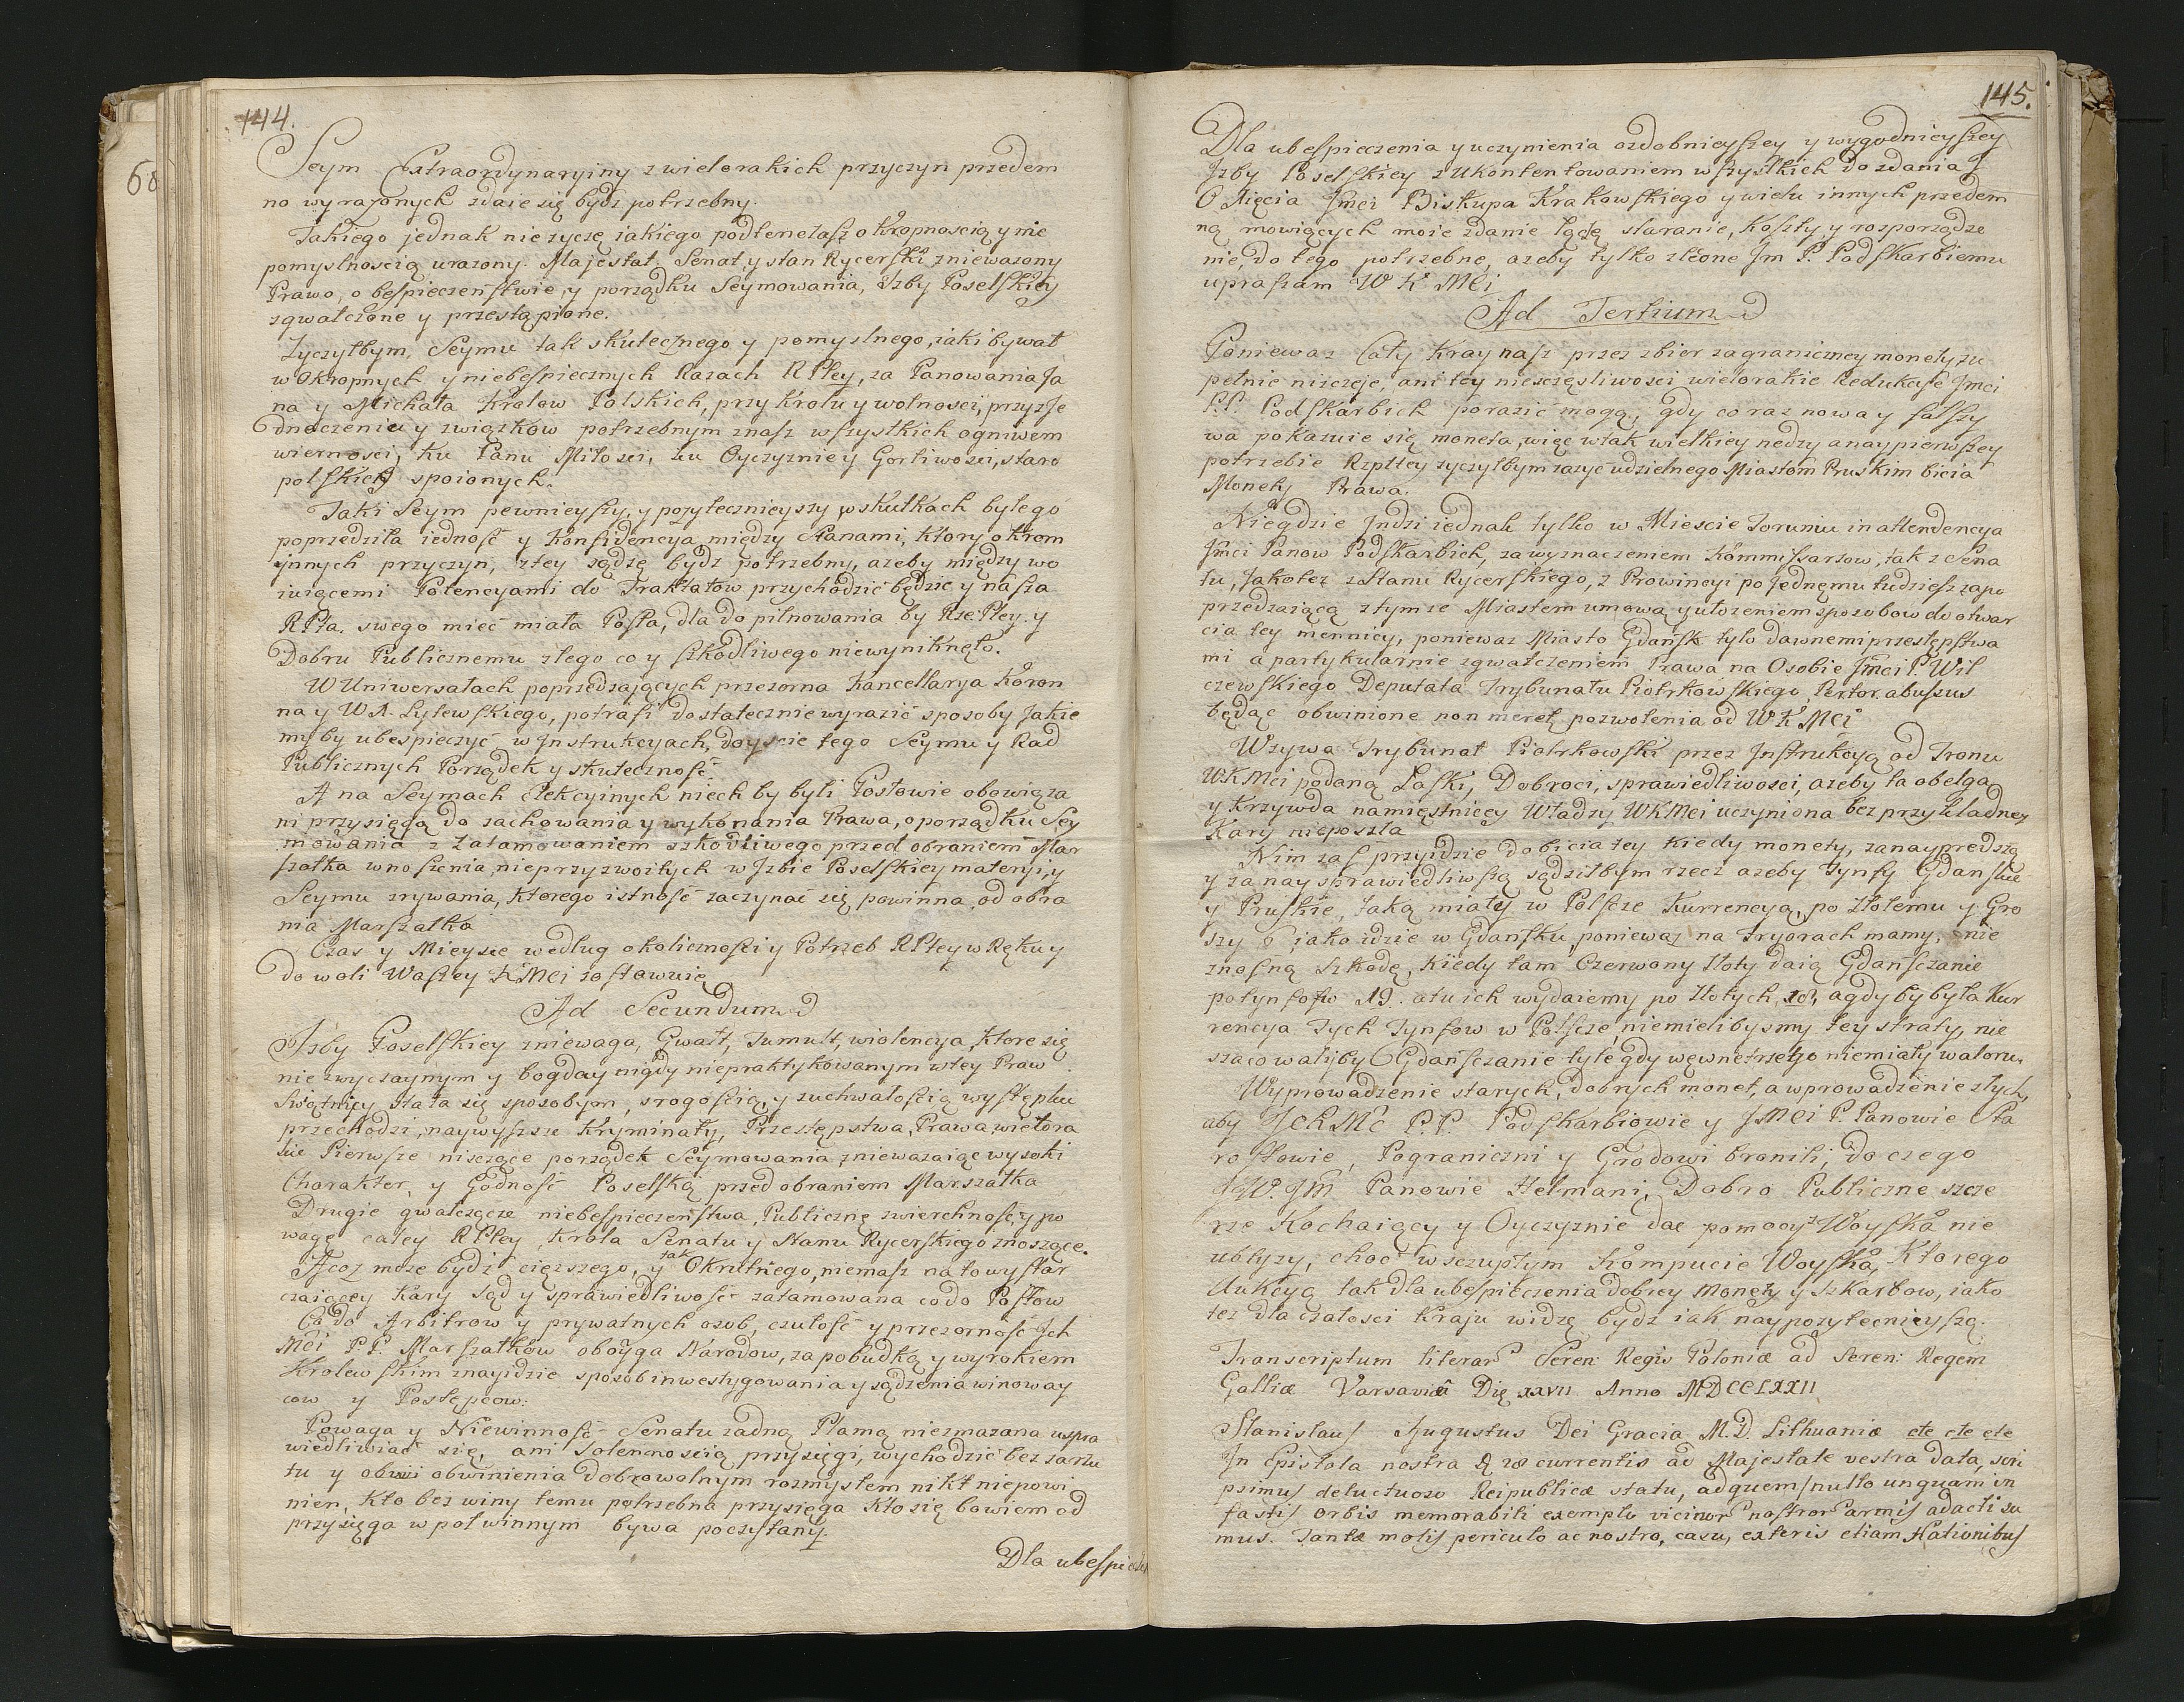 144.
68
Seym Extraordynaryiny z wielorakich przyczyn przedem
no wyrażonych zdaie się bydź potrzebny.
Takiego jednak nie zyczę iakiego podtenczasz okropnoscią y nie
pomyslnoscią urazony. Majestat, Senat, y stan Rycerski zniewazony
Prawo, o bespieczeństwie, y porządku Seymowania, Izby Poselskiey
zgwałczone y przestąpione.
Zyczyłbym Seymu tak skutecznego y pomyslnego, iaki bywał
w okropnych y niebespiecznych Razach RPltey, za Panowania Ja
na y Michała Krolow Polskich, przy Krolu y wolnosci, przy zje
dnoczeniu y związkow potrzebnym znasz wszystkich ogniwem
wiernosci, ku Panu Miłosci, ku Oyczyznie y Gorliwosci, staro
polskich spoionych.
Taki Seym pewnieyszy, y pozytecznieyszy w skutkach byłego
poprzedziła iedność y Konfidencya między Stanami, ktory okrom
innych przyczyn, ztey sądzę bydz potrzebny, azeby między wo
iuięcemi Potencyami do Traktatow przychodzić będzie y nasza
RPta. swego mieć miała Posła, dla dopilnowania by Rze Pltey. y
Dobru Publicznemu złego co y szkodliwego niewyniknęło.
W Uniwersałach poprzedzających przezorna Kancellarya Koron
na y W. X. Lytewskiego, potrafi dostatecznie wyrazić sposoby Jakie
my by ubespieczyć w Instrukcyach, doyscie tego Seymu y Rad
Publicznych Porządek y skuteczność.
A na Seymach Elekcyinych niech by byli Posłowie obowiąza
ni przysięgą do zachowania y wykonania Prawa, o porządku Sey
mowania z Zatamowaniem szkodliwego przed obraniem Mar
szałka wnoszenia, nieprzyzwoitych w Izbie Poselskiey materyi, y
Seymu zrywania, ktorego istność zaczynać się powinna, od obra
nia Marszałka
Czas y Mieysce według okolicznosci y Potrzeb RPltey w Ręku y
do woli Waszey KMci zostawuię
Ad Secundum
Izby Poselskiey zniewaga, Gwałt, Tumult, wiolencya, ktore się
niezwyczaynym y bogday nigdy niepraktykowanym w tey Praw
Swiątnicy stała się sposobym, srogoscią, y zuchwałoscią występku
przechodzi, naywyszsze Kryminały, Przestępstwa, Prawa, wielora
kie Pierwsze niszczące porządek Seymowania, zniewazaiąc wysoki
Charakter, y Godność Poselską przed obraniem Marszałka
Drugie gwałczące niebespieczeństwa, Publiczne zwierchność, y po
wagę całey RPltey, Krola Senatu y Stanu Rycerskiego znoszące.
A coz może bydź cięzszego, y tak Okrutnego, niemasz na to wystar
czaiącey kary Sąd y sprawiedliwość zatamowana co do Posłow
Co do Arbitrow y prywatnych osob, czułość y przezorność Ich
Mci P.P. Marszałkow oboyga Narodow, za pobudką y wyrokiem
Krolewskim znaydzie sposob inwestygowania y sądzenia winoway
cow y Postępcow.
Powaga y Niewinność Senatu zadną Plamą niezmazana uspra
wiedliwiać się, ani Solennoscią przysięgi, wychodzić bez zarzu
tu y obwinienia dobrowolnym rozmysłem nikt niepowi
nien, kto bez winy temu potrzebna przysięga kto się bowiem od
przysięga w pot winnym bywa poczytany.
Dla ubespiecze
145.
Dla ubespieczenia y uczynienia ozdobnieyszey y wygodnieyszey
Izby Poselskiey z ukontentowaniem wszystkich do zdania
Xięcia Jmci Biskupa Krakowskiego y wielu innych przedem
ną mowiących moie zdanie łączę staranie, Koszty, y rozporządze
nie, do tego potrzebne, azeby tylko zlcone Jm P. Podskarbiemu
upraszam W K Mci
Ad Tertium
Poniewaz Cały Kray nasz przez zbior zagraniczney monety zu
pełnie niszczeje, ani tey niesczęsliwosci wielorakie Redukcye Jmci
P.P. Podskarbich porazić mogą, gdy co raz nowa y fałszy
wa pokazuie się moneta, więc w tak wielkiey nędzy a naypierwszey
potrzebie Rzpltey zyczyłbym zazyć udzielnego Miastom Pruskim bicia
Monety Prawa.
Niegdzie Jndzi iednak tylko w Miescie Toruniu in attendencya
Jmci Panow Podskarbich, za wyznaczeniem Kommissarzow, tak z Sena
tu, jakotez z Stanu Rycerskiego, z Prowincyi po Jednemu tudziesz zapo
przedzaiącą z tymze Miastem umową y ułozeniem sposobow do otwar
cia tey mennicy, poniewaz Miasto Gdańsk tylo dawnemi przestępstwa
mi a partykularnie zgwałczeniem Prawa na Osobie Jmci P. Wil
czewskiego Deputata Trybunału Piotrkowskiego, Pertor. abuszus
będąc obwinione non meret, pozwolenia od W K Mci
Wzywa Trybunał Piotrkowski przez Jnstrukcyą od Tronu
WKMci podaną Łaski, Dobroci, sprawiedliwosci, azeby ta obelga
y krzywda namięstniczey Władzy WKMci uczyniona bez przykładney
Kary nieposzła
Nim zaś przyidzie do bicia tey kiedy monety, zanayprędszą
y za nay sprawiedliwszą sądziłbym rzecz azeby Tynfy Gdańskie
y Pruskie, taką miały w Polszcze Kurrencyą, po złotemu y Gro
szy 6 iako idzie w Gdańsku, poniewaz na Tryorach mamy, nie
znosną Szkodę, kiedy tam Czerwony Złoty daią Gdańszczanie
po tynfow 19. a tu ich wydaiemy po Złotych, 18, a gdyby była Kur
rencya Tych Tynfow w Polszcze, niemielibysmy tey straty, nie
szacowałyby Gdańszczanie tyle, gdy wewnętrznego niemiały waloru.
Wyprowadzenie starych, dobrych monet, a wprowadzenie złych,
aby Jch Mć P.P. Podskarbiowie y JMci P. Panowie Sta
rostowie, Pograniczni y Grodowi bronili, do czego
JW. Jm Panowie Hetmani, Dobro Publiczne szcze
rze Kochaiący y Oyczyznie dać pomocy z Woyska nie
ubliży, choć w szczupłym Kompucie Woyska, Ktorego
Aukcyą tak dla ubespieczenia dobrey Monety y Szkarbow, iako
tez dla czałosci Kraju widzę bydz iak naypozytecznieyszą.
Transcriptum literar Seren: Regis Poloniæ ad Seren: Regem
Galliæ Varsaviâ Die XXVII Anno MDCCLXXII
Stanislaus Augustus Dei Gracia M. D. Lithuaniæ etc etc etc
In Epistola nostra 28 currentis ad Majestate vestra data, scri
psimus deluctuoso Reipublicæ statu, ad quem nullo unquam in
fastis orbis memorabili exemplo vicinor nostror armis adacti su
mus. Tantæ molis periculo ac nostro, casu, exteris etiam Nationibus